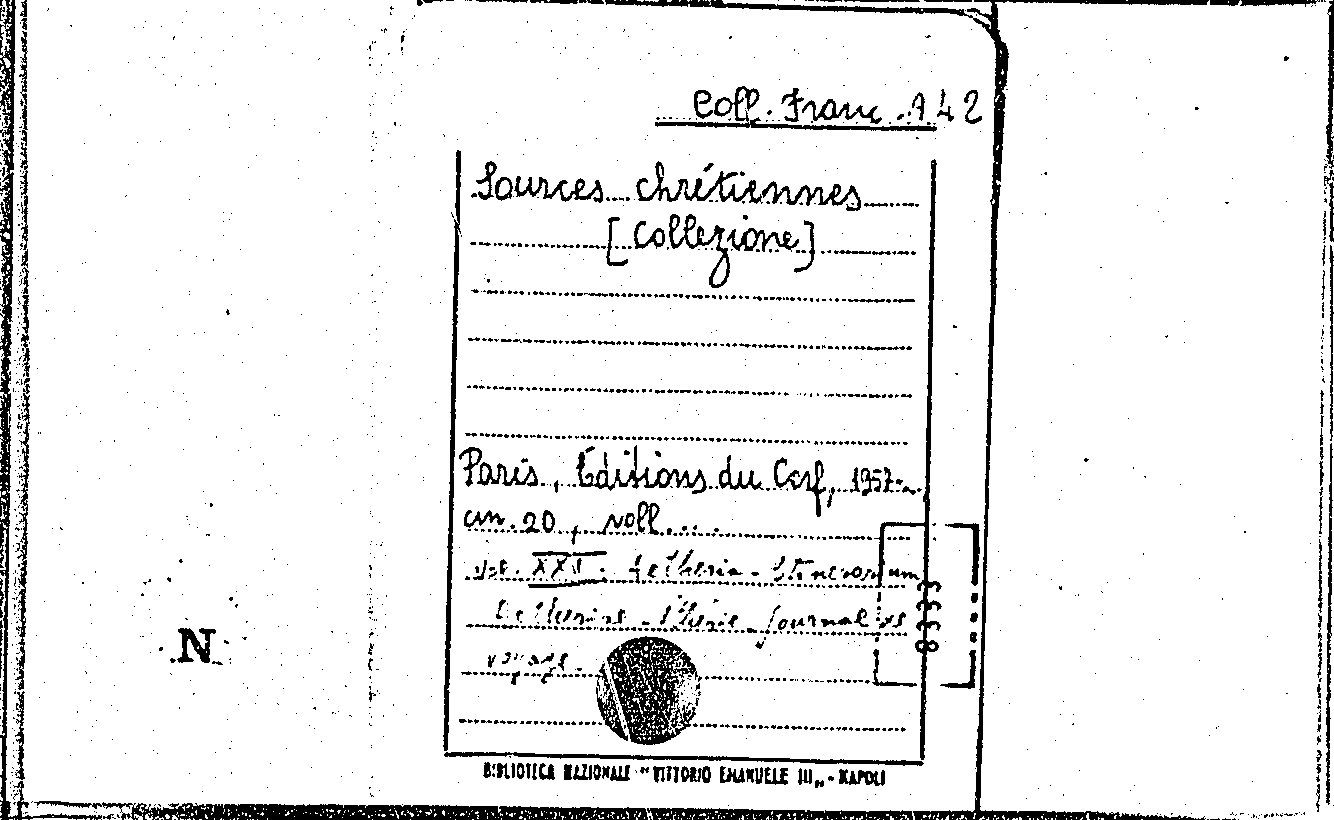 Coll. Franc. A 42
Sources chrétiennes
[Collezione]
Paris, Editions du Cerf, 1957-..
cm. 20, voll. ...
Vol. XXI. Aetheria - Itinerarium
Aetheriae - Ethérie - Journal de
voyage.
8333
N
BIBLIOTECA NAZIONALE "VITTORIO EMANUELE III„ - NAPOLI